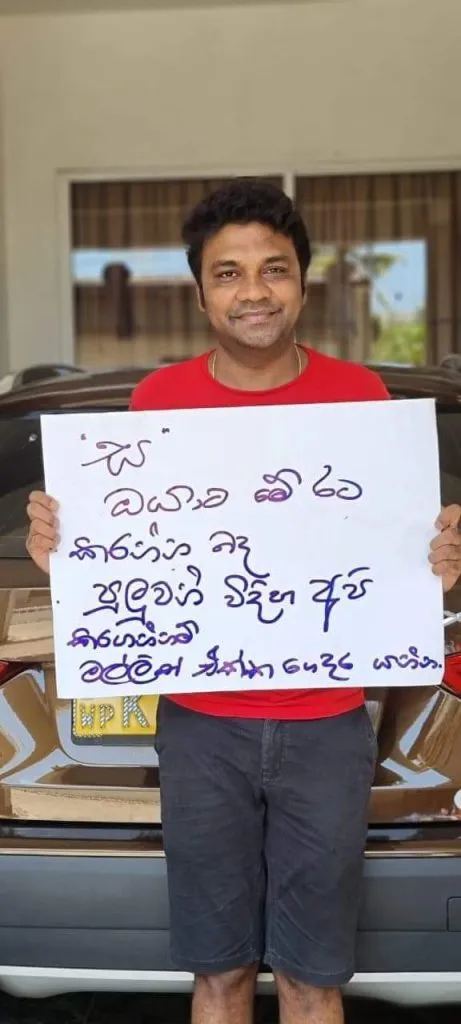 "ස"
ඔයාට මේ රට
කරන්න බෑ
පුලුවන් විදිහ අපි
කරගන්නම්
මල්ලිත් එක්ක ගෙදර යන්න.
WP K